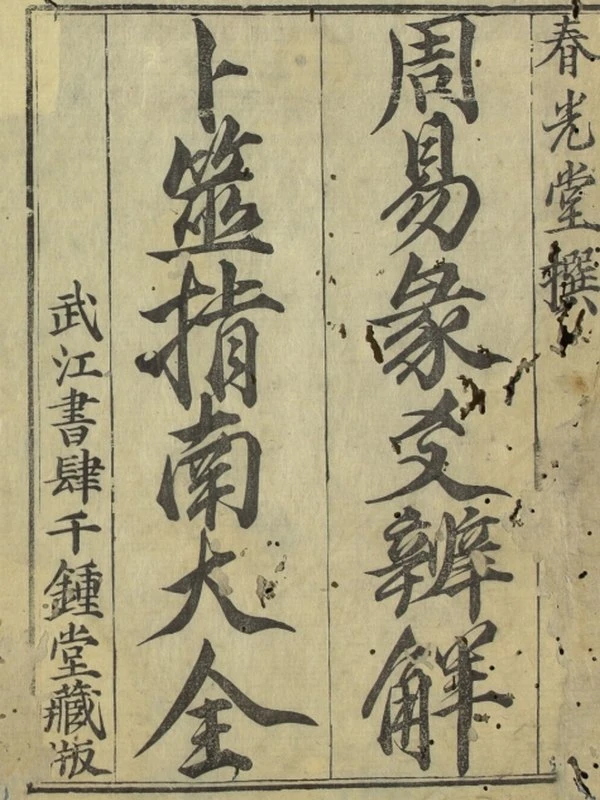 春光堂撰
周易彖爻辨解
卜筮指南大全
武江書肆千鍾堂藏版